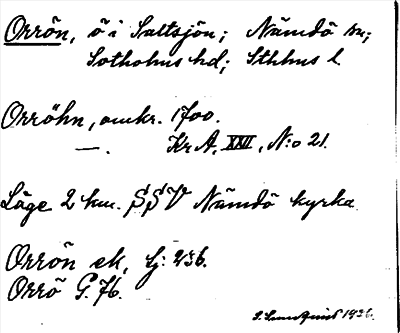 Orrön, ö i Saltsjön; Nämdö sn;
Sotholms hd; Sthlms l.
Orröhn, omkr. 1700.
—. Kr A, XXII, N:o 21.
Läge 2 km. SSV Nämdö kyrka
Orrön ek, lj: 236.
Orrö G. 76.
1936.